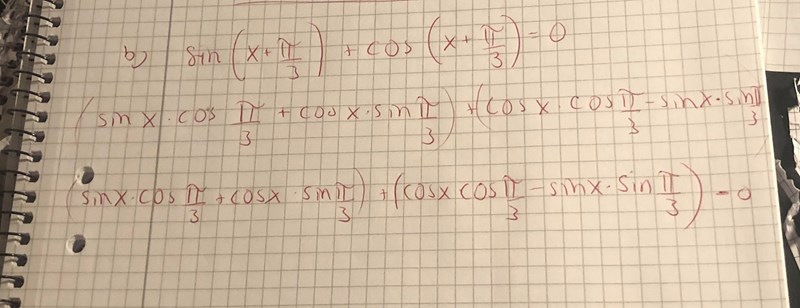 b) sin (x + π/3) + cos (x + π/3) = 0
(sin x · cos π/3 + cos x · sin π/3) + (cos x · cos π/3 - sin x · sin π/3
(sin x · cos π/3 + cos x · sin π/3) + (cos x cos π/3 - sin x · sin π/3) = 0